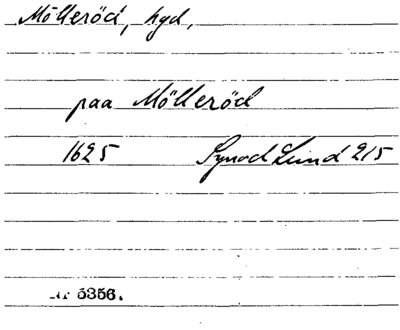 Mölleröd, hgd,
paa Mölleröd
1625 Synod Lund 215
Nr 5356.